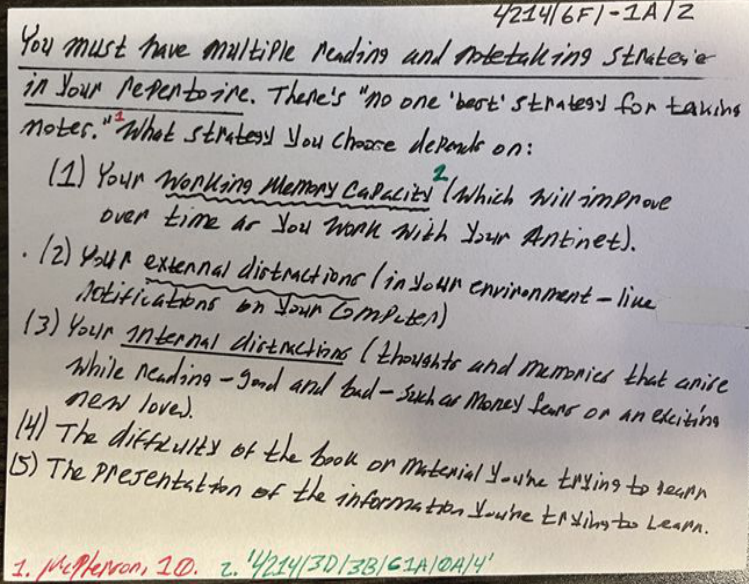 4214/6F/-1A/2
You must have multiple reading and notetaking strategie
in your repertoire. There's "no one 'best' strategy for taking
notes."1 What strategy you choose depends on:
(1) Your Working Memory Capacity2 (which will improve
over time as you work with your Antinet).
(2) Your external distractions (in your environment - like
notifications on your computer)
(3) Your internal distractions (thoughts and memories that arise
while reading - good and bad - such as money fears or an exciting
new love).
(4) The difficulty of the book or material you're trying to learn
(5) The presentation of the information you're trying to learn.
1. McPherson, 10. 2. '4214/3D/3B/61A/0A/4'